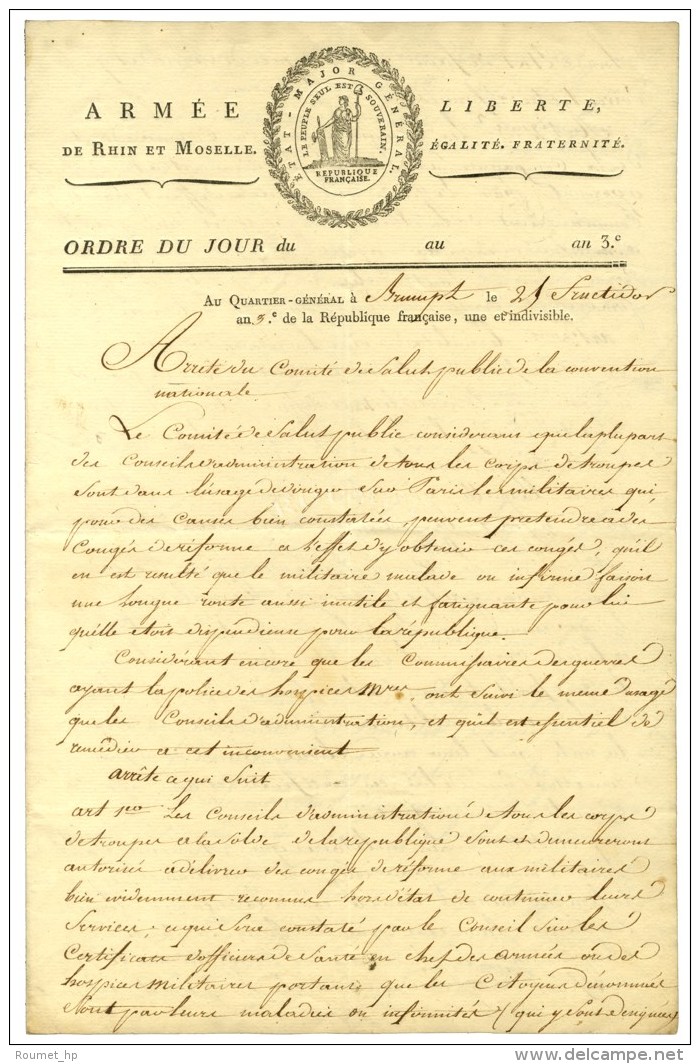 ÉTAT-MAJOR GÉNÉRAL.
LE PEUPLE SEUL EST SOUVERAIN.
RÉPUBLIQUE
FRANÇAISE.
ARMÉE
DE RHIN ET MOSELLE.
LIBERTÉ,
ÉGALITÉ. FRATERNITÉ.
ORDRE DU JOUR du au an 3.e
AU QUARTIER-GÉNÉRAL à Brumpt le 21 Fructidor
an 3.e de la République française, une et indivisible.
Arrêté du Comité de Salut public de la convention
nationale
Le Comité de Salut public considerant que la plupart
des Conseils d'administration de tous les corps de troupes
sont dans l'usage de diriger sur Paris les militaires qui
pour des causes bien constatées, peuvent pretendre a des
Congés de réforme a l'effet d'y obtenir ces congés, qu'il
en est resulté que le militaire malade ou infirme faisoit
une longue route aussi inutile et fatiguante pour lui
qu'elle etoit dispendieuse pour la république.
Considérant encore que les Commissaires des guerres
ayant la police des hospices Mres ont suivi le meme usage
que les Conseils d'administration, et qu'il est essentiel de
remedier a cet inconvenient
arrête ce qui suit
art 1er Les Conseils d'administration de tous les corps
de troupes a la solde de la république sont et demeureront
autorisés a délivrer des congés de réforme aux militaires
bien evidemment reconnus hors d'état de continuer leurs
Services, ce qui sera constaté par le Conseil sur les
Certificats d'officiers de Santé en chef des armées ou des
hospices militaires portant que les Citoyens dénommés
sont par leurs maladies ou infirmités (qui y sont designées
Roumet_hp
www.delcampe.net